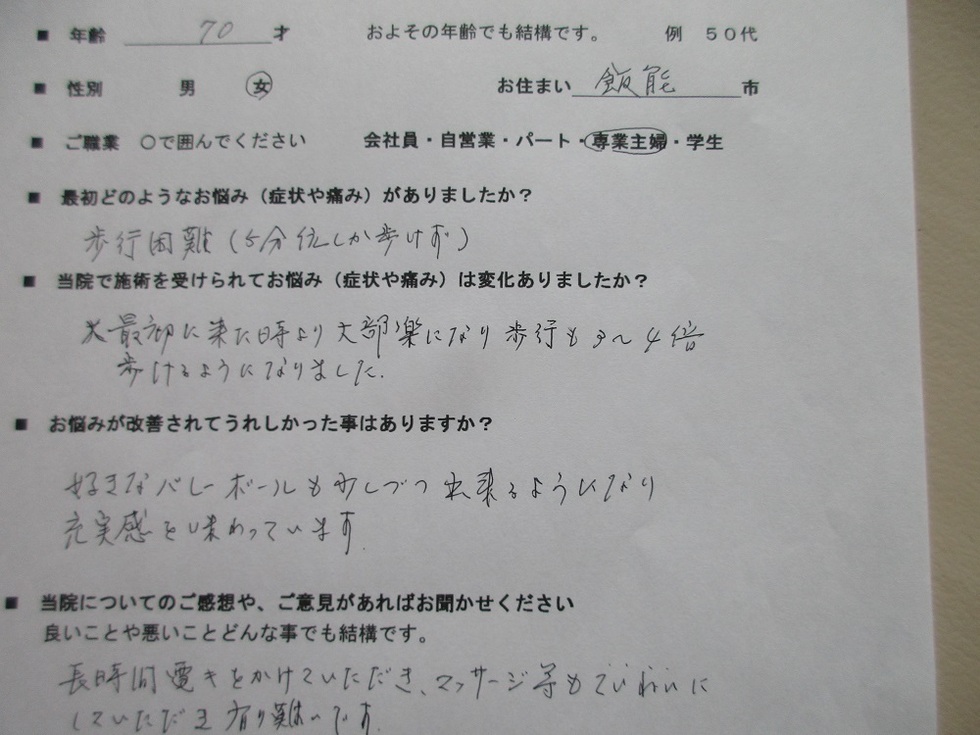 ■ 年齢 70 才 およその年齢でも結構です。 例 50代
■ 性別 男 女 お住まい 飯能 市
■ ご職業 ○で囲んでください 会社員・自営業・パート・専業主婦・学生
■ 最初どのようなお悩み（症状や痛み）がありましたか？
歩行困難(5分位しか歩けず)
■ 当院で施術を受けられてお悩み（症状や痛み）は変化ありましたか？
最初に来た時より大部楽になり歩行も3〜4倍
歩けるようになりました.
■ お悩みが改善されてうれしかった事はありますか？
好きなバレーボールも少しづつ出来るようになり
充実感を味わっています.
■ 当院についてのご感想や、ご意見があればお聞かせください
良いことや悪いことどんな事でも結構です。
長時間電キをかけていただき、マッサージ等もていねいに
していただき有り難いです.